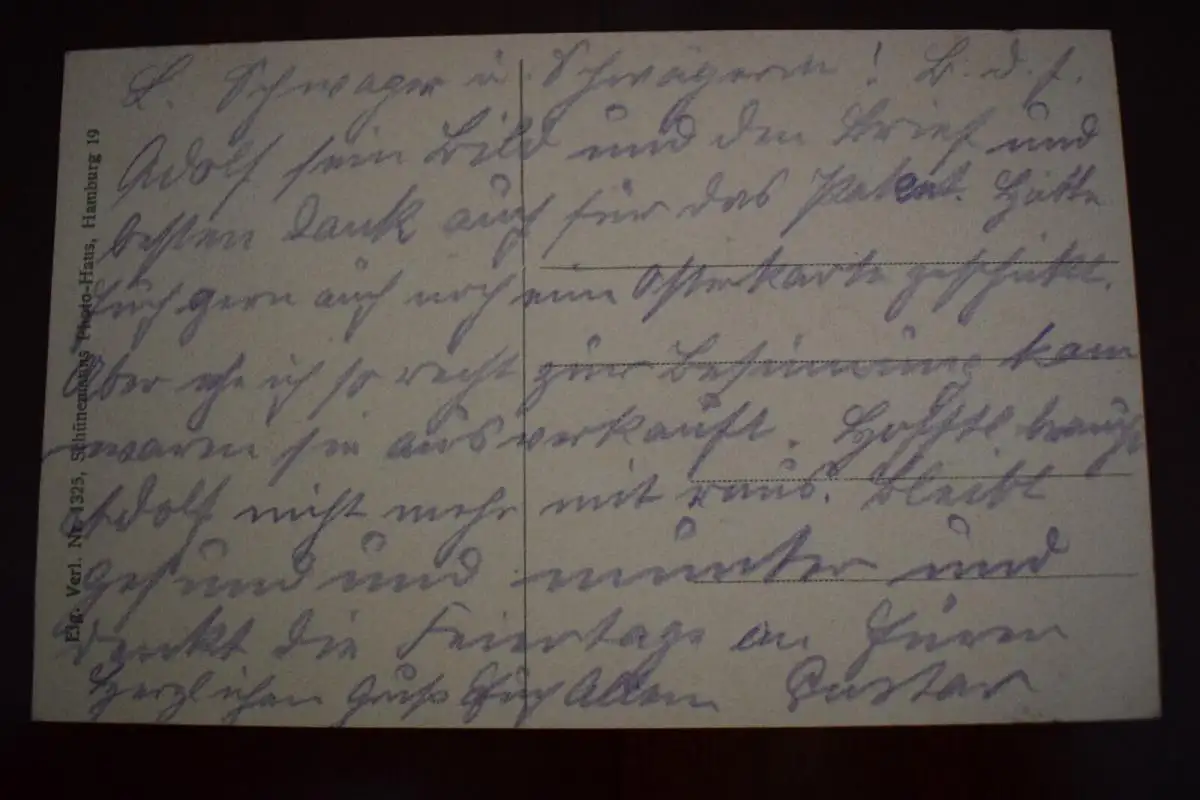 L. Schwager u. Schwägerin! B. d. f.
Adolf sein Bild und den Brief und
besten Dank auch für das Paket. Hätte
Euch gern auch noch eine Osterkarte geschickt.
Aber ehe ich so recht zur Besinnung kam
waren sie ausverkauft. Hoffentl. braucht
Adolf nicht mehr mit raus. Bleibt
gesund und munter und
denkt die Feiertage an Euren
Herzlichen Gruß Euch Allen Gustav
Eig. Verl. Nr. 1325, Schünemanns Photo-Haus, Hamburg 19